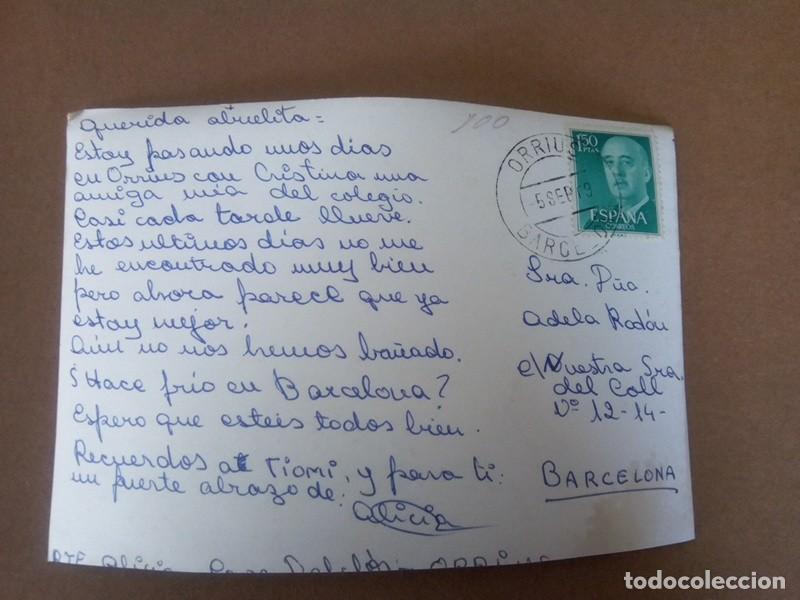 Querida abuelita =
Estoy pasando unos días
en Orrius con Cristina una
amiga mía del colegio.
Casi cada tarde llueve.
Estos ultimos días no me
he encontrado muy bien
pero ahora parece que ya
estoy mejor.
Aún no nos hemos bañado.
¿Hace frío en Barcelona?
Espero que esteis todos bien.
Recuerdos a Tiomi, y para ti
un fuerte abrazo de:
Alicia
RTE Alicia ORRIUS
100
ORRIUS
-5 SEP 69
BARCEL
1,50
PTAS
ESPAÑA
CORREOS
Sra. Dña.
Adela Rodón
c/ Nuestra Sra.
del Coll
Nº 12-14-
BARCELONA
todocoleccion
todocoleccion.net